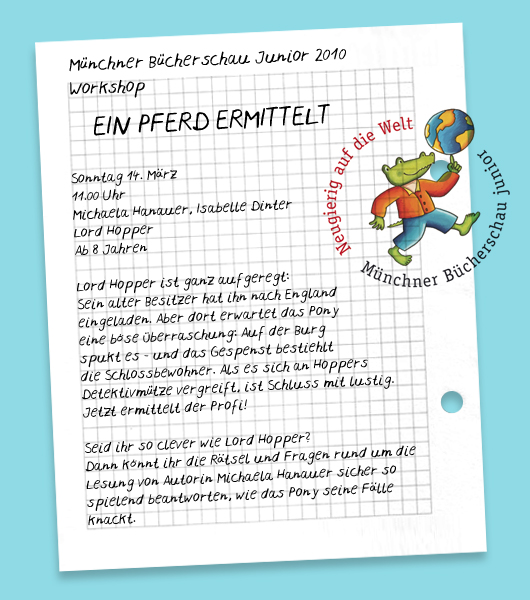 Münchner Bücherschau Junior 2010
Workshop
EIN PFERD ERMITTELT
Sonntag 14. März
11.00 Uhr
Michaela Hanauer, Isabelle Dinter
Lord Hopper
Ab 8 Jahren
Neugierig auf die Welt
Münchner Bücherschau Junior
Lord Hopper ist ganz aufgeregt:
Sein alter Besitzer hat ihn nach England
eingeladen. Aber dort erwartet das Pony
eine böse Überraschung: Auf der Burg
spukt es - und das Gespenst bestiehlt
die Schlossbewohner. Als es sich an Hoppers
Detektivmütze vergreift, ist Schluss mit lustig.
Jetzt ermittelt der Profi!
Seid ihr so clever wie Lord Hopper?
Dann könnt ihr die Rätsel und Fragen rund um die
Lesung von Autorin Michaela Hanauer sicher so
spielend beantworten, wie das Pony seine Fälle
knackt.